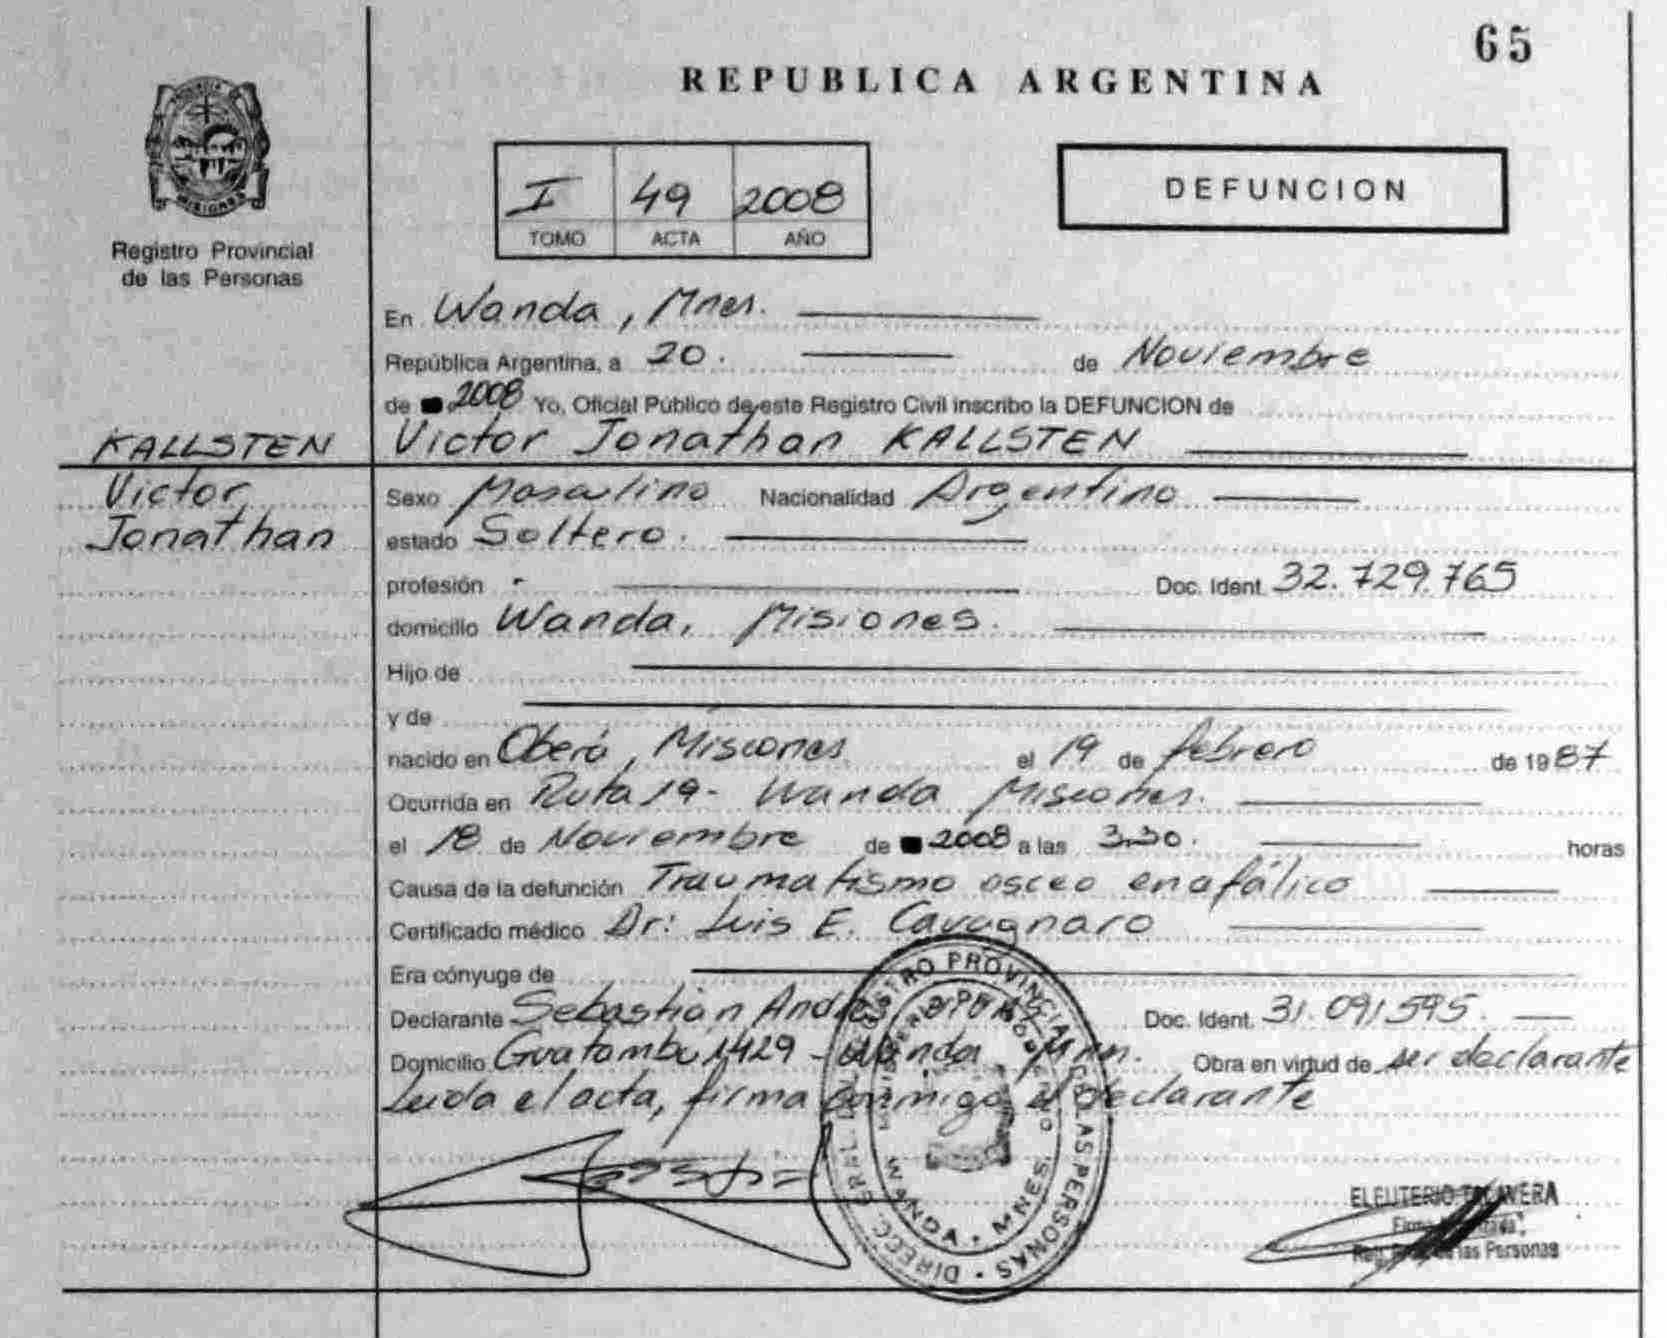 65
REPUBLICA ARGENTINA
MISIONES
Registro Provincial
de las Personas
I 49 2008
TOMO ACTA AÑO
DEFUNCION
En Wanda, Mnes.
República Argentina, a 20. de Noviembre
de 2008 Yo, Oficial Público de este Registro Civil inscribo la DEFUNCION de
KALLSTEN Victor Jonathan KALLSTEN
Victor
Jonathan
Sexo Masculino Nacionalidad Argentino
estado Soltero.
profesión Doc. Ident. 32.729.765
domicilio Wanda, Misiones.
Hijo de
y de
nacido en Oberá, Misiones el 19 de febrero de 1987
Ocurrida en Ruta 19- Wanda Misiones.
el 18 de Noviembre de 2008 a las 3.30. horas
Causa de la defunción Traumatismo osceo enafálico
Certificado médico Dr: Luis E. Cavagnaro
Era cónyuge de
Declarante Sebastián Doc. Ident. 31.091.595.
Domicilio Guatambu 1429 - Wanda Mnn. Obra en virtud de ser declarante
Leída el acta, firma conmigo el declarante
DIRECC. GRAL. DEL REGISTRO PROVINCIAL DE LAS PERSONAS
WANDA - MNES.
ELEUTERIO TALAVERA
de las Personas